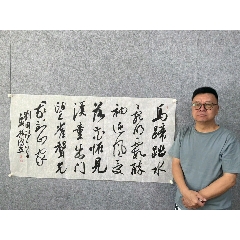 馬蹄踏水
亂明霞醉
袖迎風受
落花怪見
溪童出門
望雀聲先
我到山家